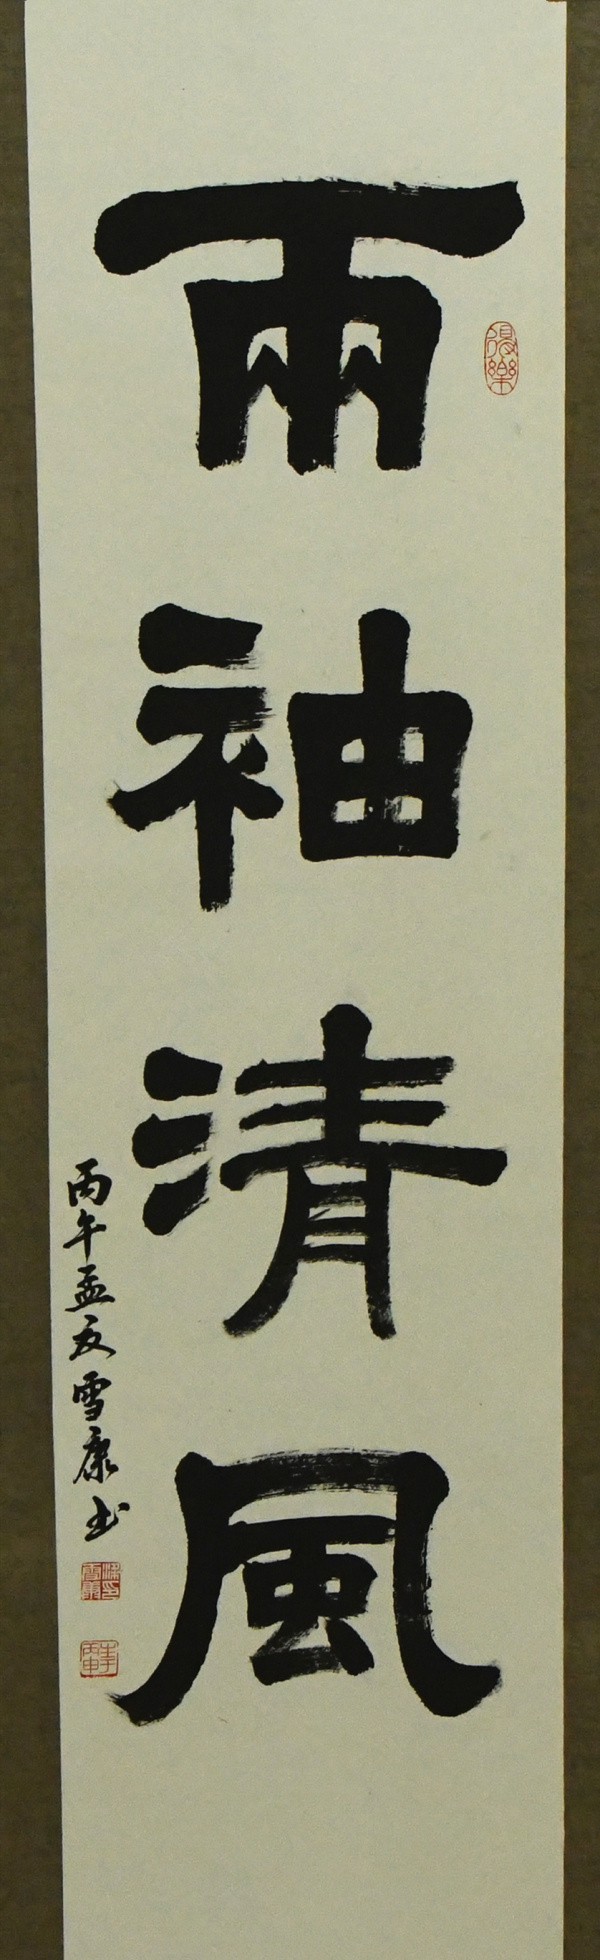 兩袖清風
丙午孟夏雪康书